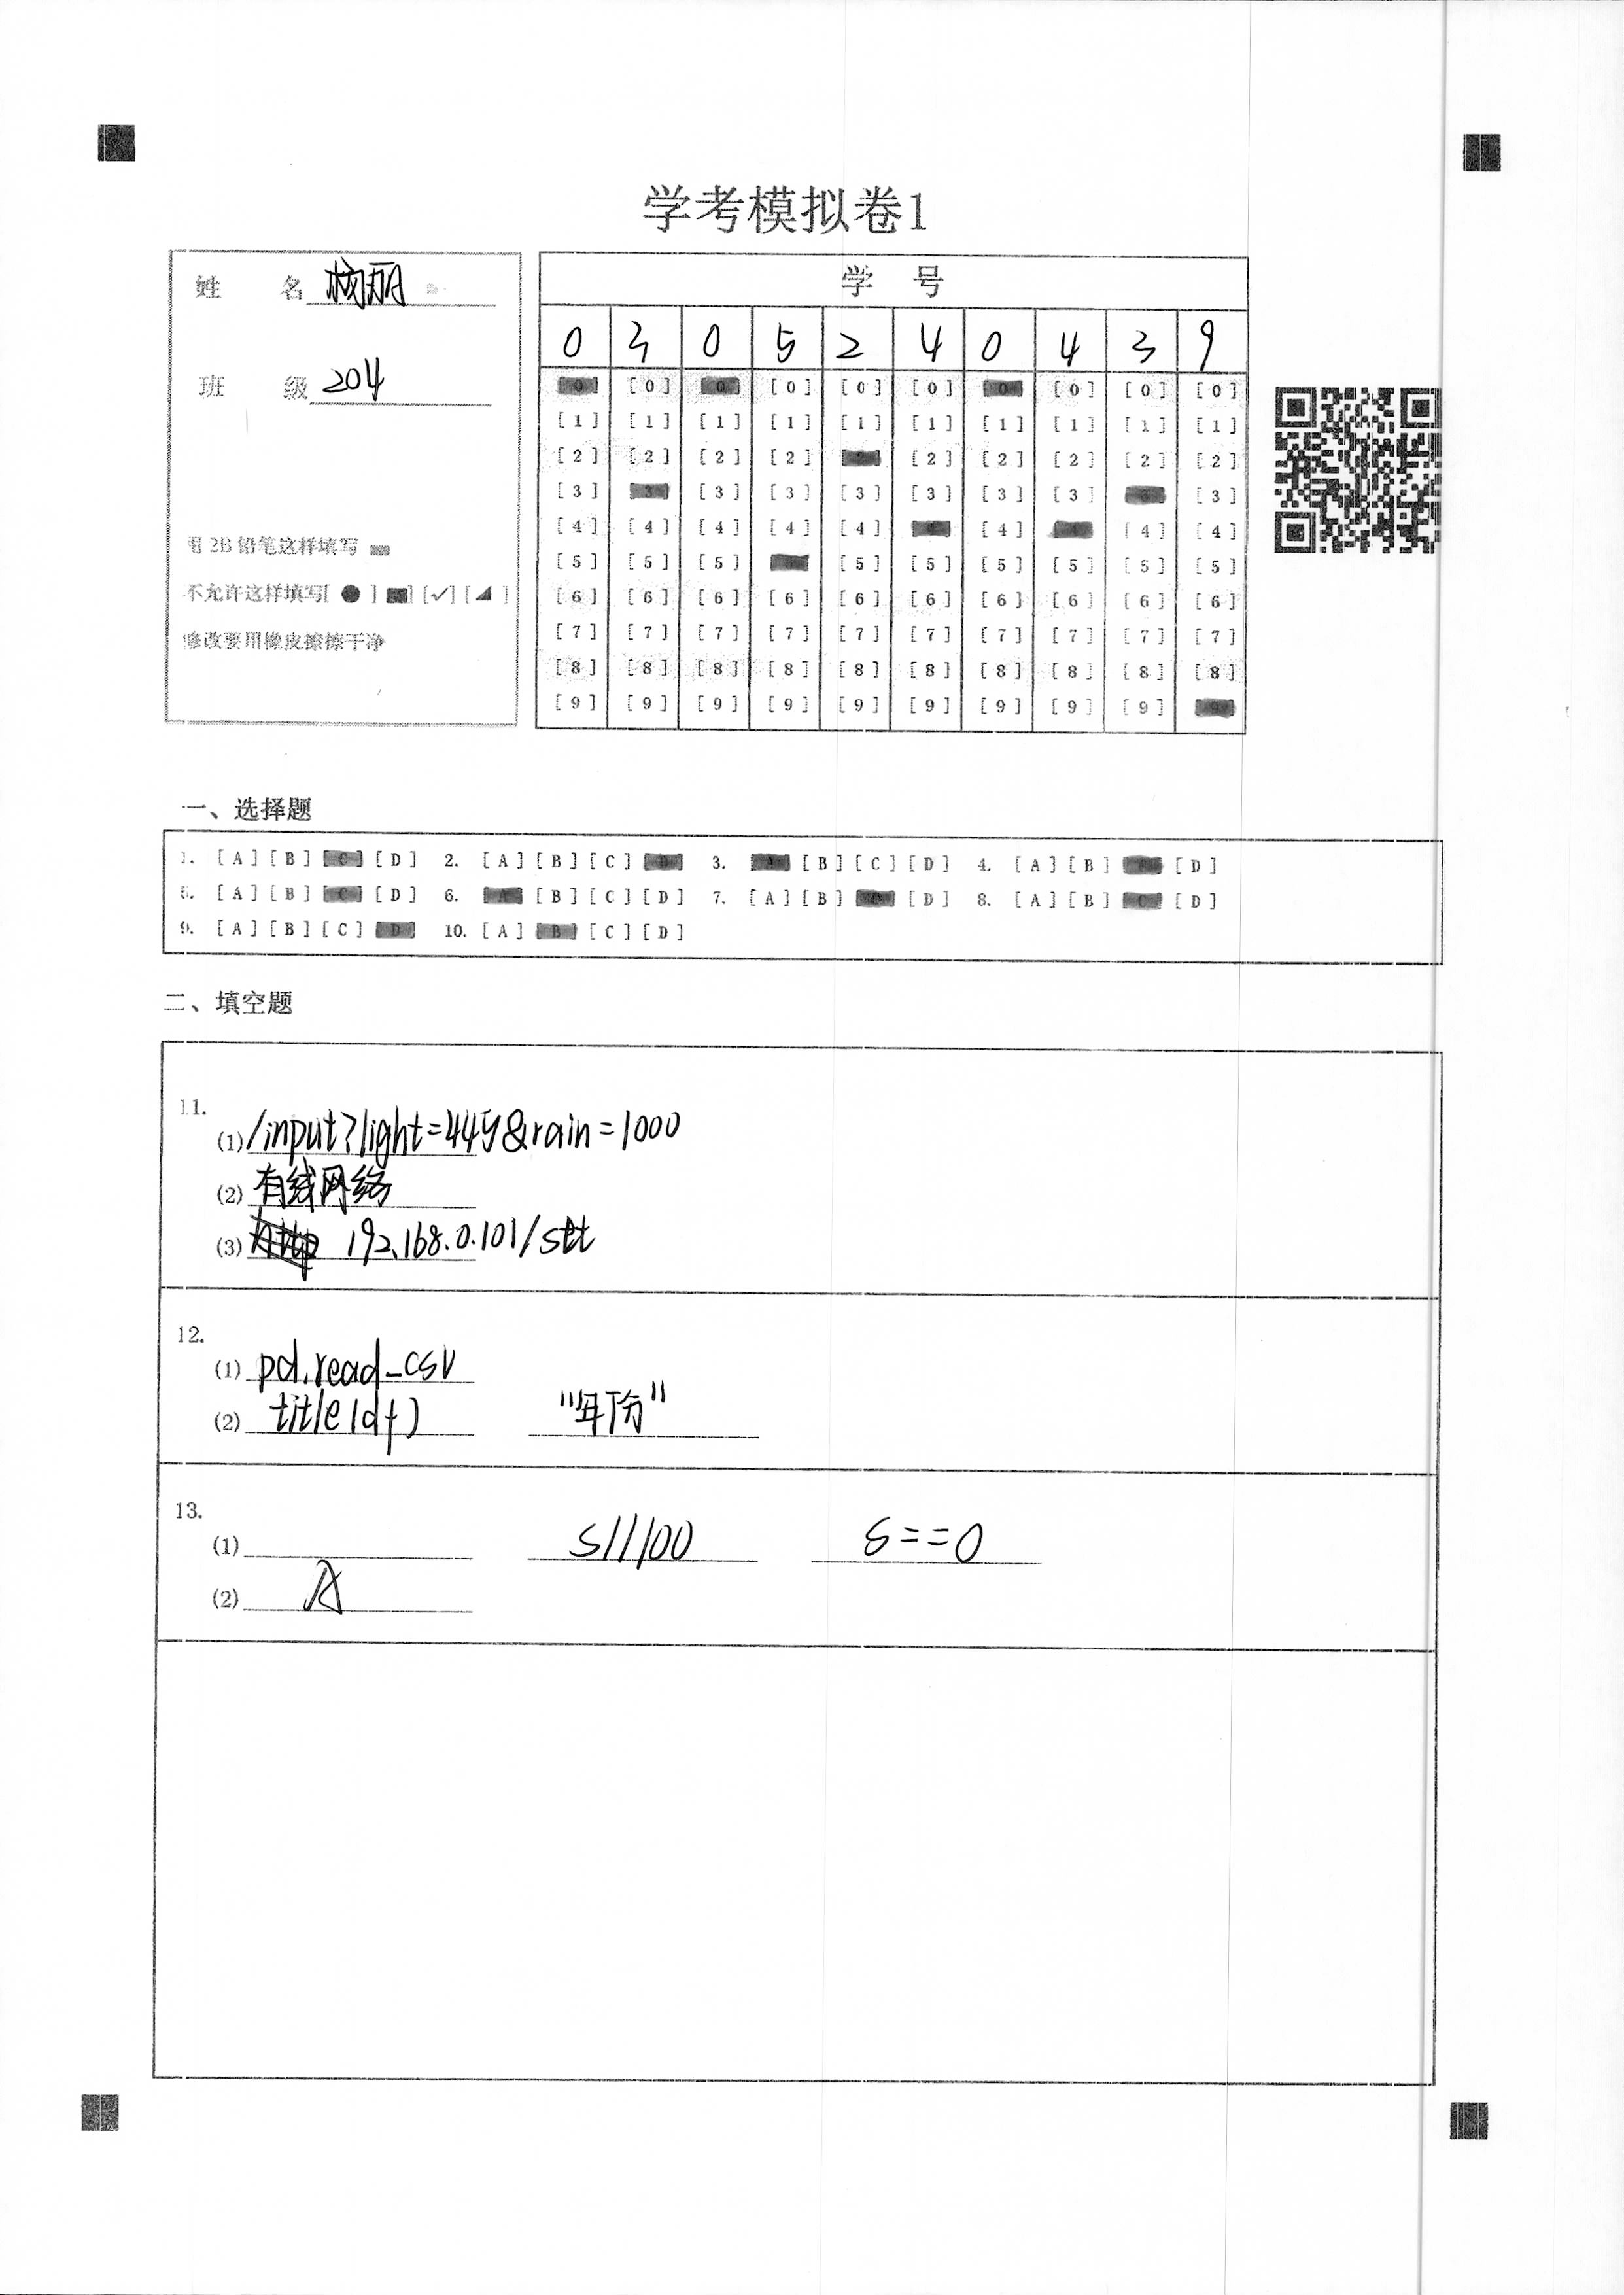 学考模拟卷1
姓 名
班 级 204
用2B铅笔这样填写
不允许这样填写[ ● ] [■] [✓] [◢ ]
修改要用橡皮擦擦干净
学 号
0 3 0 5 2 4 0 4 3 9
[0] [0] [0] [0] [0] [0] [0] [0] [0] [0]
[1] [1] [1] [1] [1] [1] [1] [1] [1] [1]
[2] [2] [2] [2] [2] [2] [2] [2] [2] [2]
[3] [3] [3] [3] [3] [3] [3] [3] [3] [3]
[4] [4] [4] [4] [4] [4] [4] [4] [4] [4]
[5] [5] [5] [5] [5] [5] [5] [5] [5] [5]
[6] [6] [6] [6] [6] [6] [6] [6] [6] [6]
[7] [7] [7] [7] [7] [7] [7] [7] [7] [7]
[8] [8] [8] [8] [8] [8] [8] [8] [8] [8]
[9] [9] [9] [9] [9] [9] [9] [9] [9] [9]
一、选择题
1. [A] [B] [C] [D] 2. [A] [B] [C] [D] 3. [A] [B] [C] [D] 4. [A] [B] [C] [D]
5. [A] [B] [C] [D] 6. [A] [B] [C] [D] 7. [A] [B] [C] [D] 8. [A] [B] [C] [D]
9. [A] [B] [C] [D] 10. [A] [B] [C] [D]
二、填空题
11.
(1) /input?light=445&rain=1000
(2) 有线网络
(3) 192.168.0.101/
12.
(1) pd.read_csv
(2) title(df) "年份"
13.
(1) s//100 s==0
(2) A